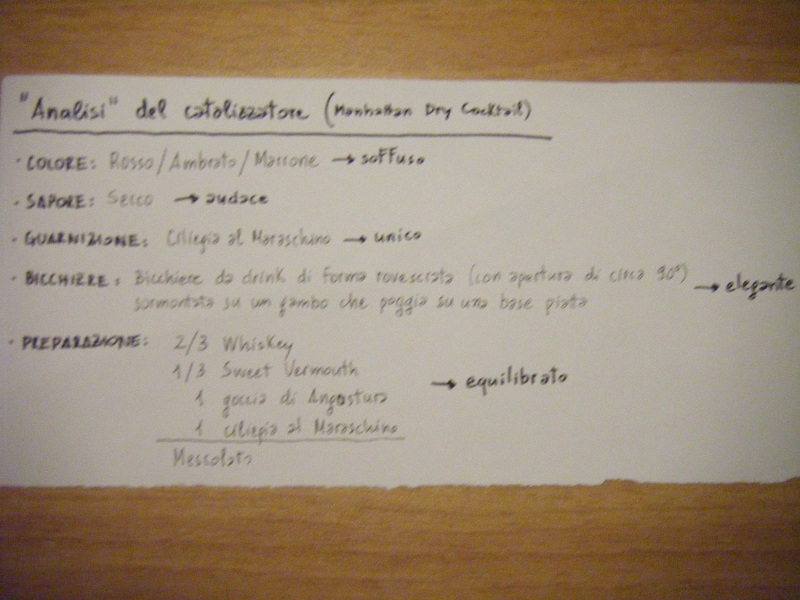 "Analisi" del catalizzatore (Manhattan Dry Cocktail)
· COLORE: Rosso/Ambrato/Marrone → soffuso
· SAPORE: Secco → audace
· GUARNIZIONE: Ciliegia al Maraschino → unico
· BICCHIERE: Bicchiere da drink di forma rovesciata (con apertura di circa 90°) → elegante
sormontata su un gambo che poggia su una base piata
· PREPARAZIONE: 2/3 Whiskey
1/3 Sweet Vermouth
1 goccia di Angostura → equilibrato
1 ciliegia al Maraschino
Mescolato